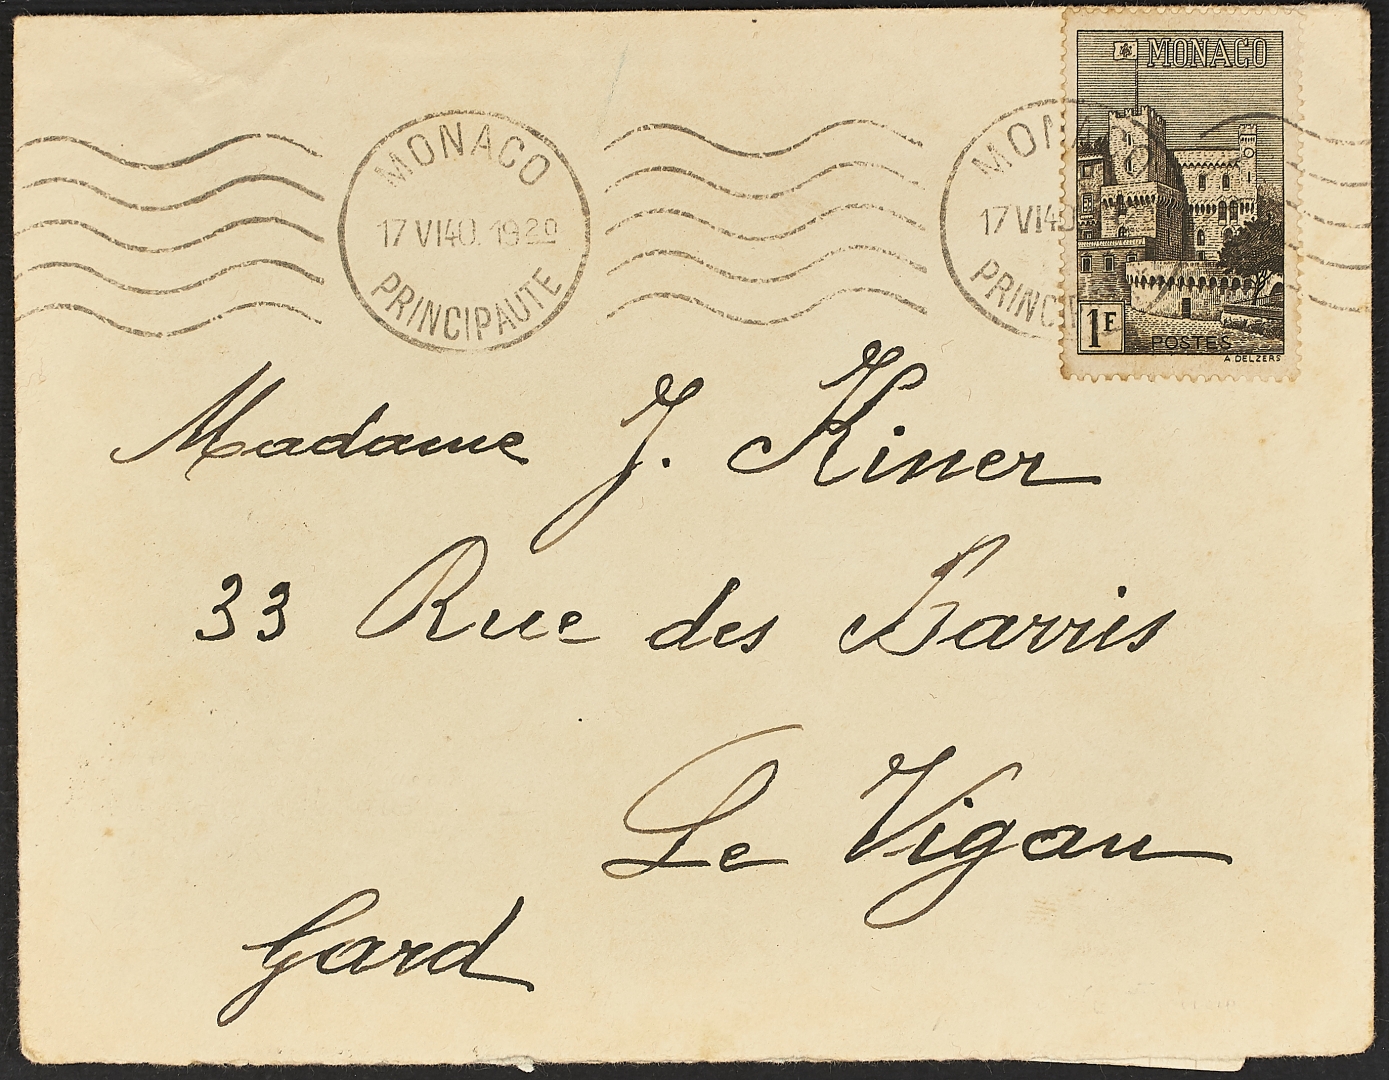 MONACO
17 VI 40. 19 20
PRINCIPAUTE
MONACO
17 VI 40
PRINCI
MONACO
1F
POSTES
A DELZERS
Madame J. Kiner
33 Rue des Barris
Le Vigan
Gard